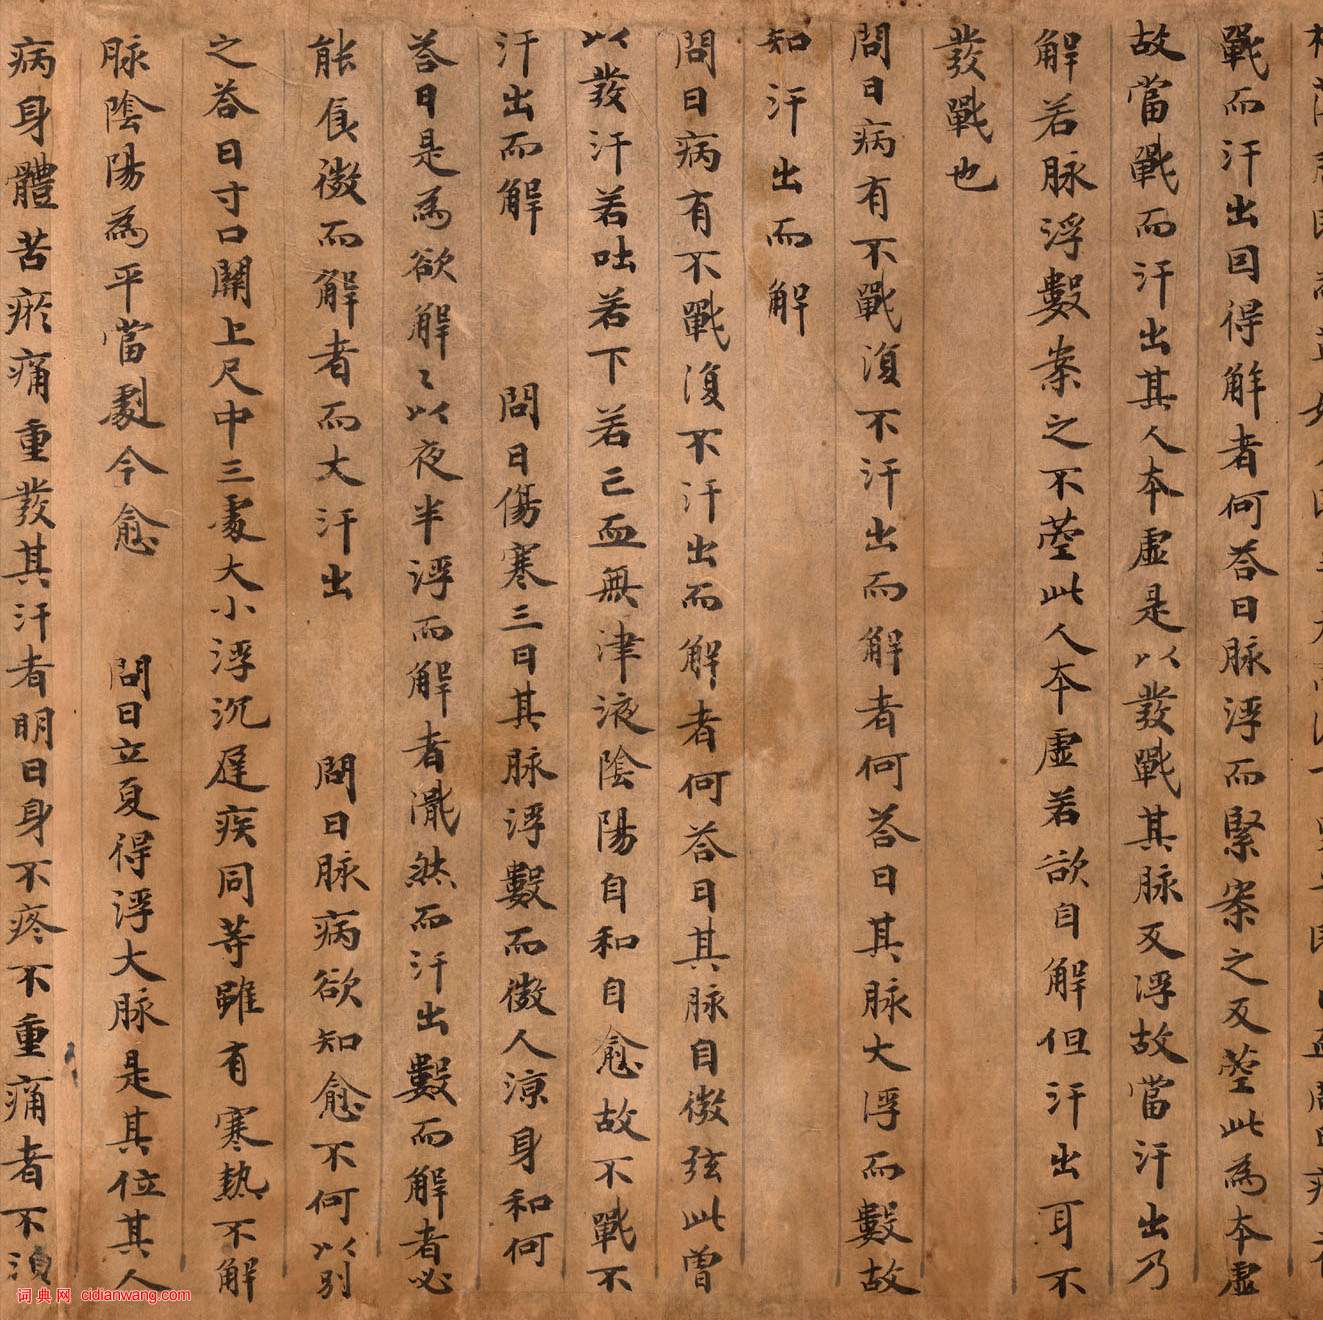 戰而汗出因得解者何荅曰脉浮而緊案之反芤此為本虛
故當戰而汗出其人本虛是以發戰其脉反浮故當汗出乃
解若脉浮數案之不芤此人本虛若欲自解但汗出耳不
發戰也
問曰病有不戰復不汗出而解者何荅曰其脉大浮而數故
知汗出而解
問曰病有不戰復不汗出而解者何荅曰其脉自微弦此曾
以發汗若吐若下若亡血無津液陰陽自和自愈故不戰不
汗出而解 問曰傷寒三日其脉浮數而微人涼身和何
荅曰是為欲解〻以夜半浮而解者濈然而汗出數而解者必
能食微而解者而大汗出 問曰脉病欲知愈不何以別
之荅曰寸口關上尺中三處大小浮沉遲疾同等雖有寒熱不解
脉陰陽為平當劇今愈 問曰立夏得浮大脉是其位其人
病身體苦疼痛重發其汗者明日身不疼不重痛者不須
词典网 cidianwang.com